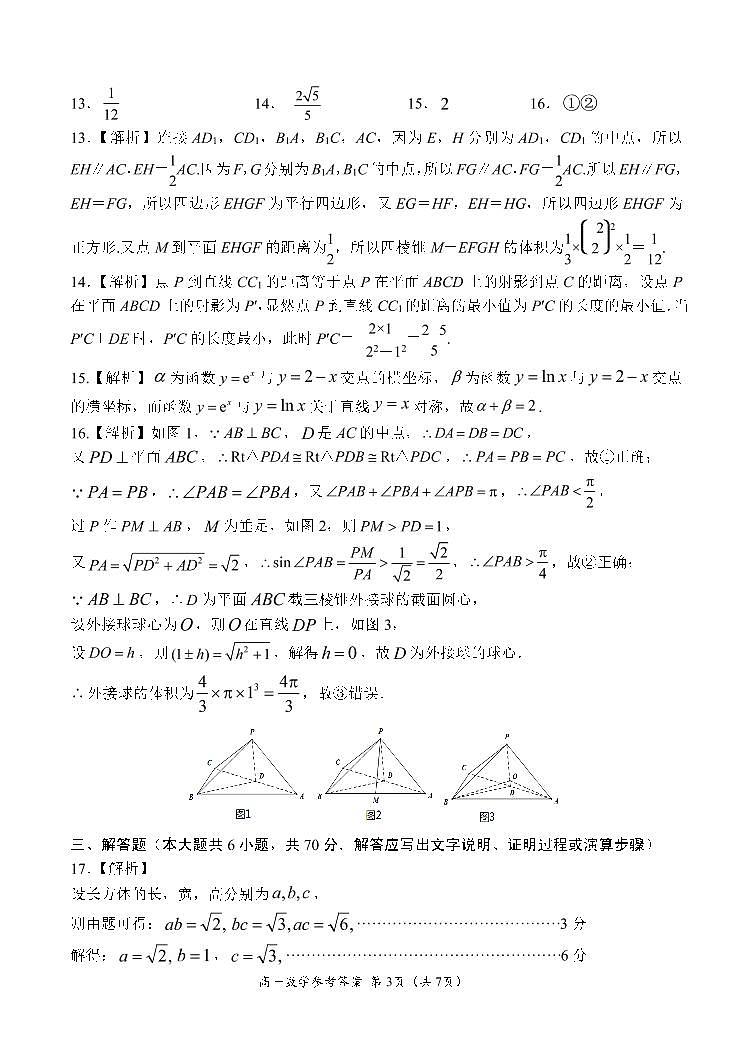 13. 1/12 14. 2√5/5 15. 2 16. ①②
13.【解析】连接 AD₁，CD₁，B₁A，B₁C，AC，因为 E，H 分别为 AD₁，CD₁ 的中点，所以
EH∥AC，EH＝1/2AC.因为 F，G 分别为 B₁A，B₁C 的中点，所以 FG∥AC，FG＝1/2AC.所以 EH∥FG，
EH＝FG，所以四边形 EHGF 为平行四边形，又 EG＝HF，EH＝HG，所以四边形 EHGF 为
正方形.又点 M 到平面 EHGF 的距离为1/2，所以四棱锥 M－EFGH 的体积为1/3×(2/2)²×1/2＝1/12.
14.【解析】点 P 到直线 CC₁ 的距离等于点 P 在平面 ABCD 上的射影到点 C 的距离，设点 P
在平面 ABCD 上的射影为 P′，显然点 P 到直线 CC₁ 的距离的最小值为 P′C 的长度的最小值.当
P′C⊥DE 时，P′C 的长度最小，此时 P′C＝2×1/2²＋1²＝2 5/5.
15.【解析】α 为函数 y = eˣ 与 y = 2 − x 交点的横坐标，β 为函数 y = ln x 与 y = 2 − x 交点
的横坐标，而函数 y = eˣ 与 y = ln x 关于直线 y = x 对称，故 α + β = 2．
16.【解析】如图 1，∵ AB ⊥ BC，D 是 AC 的中点，∴ DA = DB = DC，
又 PD ⊥ 平面 ABC，∴ Rt△PDA ≅ Rt△PDB ≅ Rt△PDC，∴ PA = PB = PC，故①正确；
∵ PA = PB，∴ ∠PAB = ∠PBA，又 ∠PAB + ∠PBA + ∠APB = π，∴ ∠PAB < π/2，
过 P 作 PM ⊥ AB，M 为垂足，如图 2，则 PM > PD = 1，
又 PA = √(PD² + AD²) = √2，∴ sin ∠PAB = PM/PA > 1/√2 = √2/2，∴ ∠PAB > π/4，故②正确；
∵ AB ⊥ BC，∴ D 为平面 ABC 截三棱锥外接球的截面圆心，
设外接球球心为 O，则 O 在直线 DP 上，如图 3，
设 DO = h，则 (1 ± h) = √(h² + 1)，解得 h = 0，故 D 为外接球的球心．
∴ 外接球的体积为 4/3 × π × 1³ = 4π/3，故③错误．
P C D B A
P C D B M A
P C O D B A
图1 图2 图3
三、解答题（本大题共 6 小题，共 70 分．解答应写出文字说明、证明过程或演算步骤）
17.【解析】
设长方体的长，宽，高分别为 a, b, c，
则由题可得：ab = √2, bc = √3, ac = √6, ……………………………………3 分
解得：a = √2, b = 1，c = √3, ……………………………………………………6 分
高一数学参考答案 第 3 页（共 7 页）